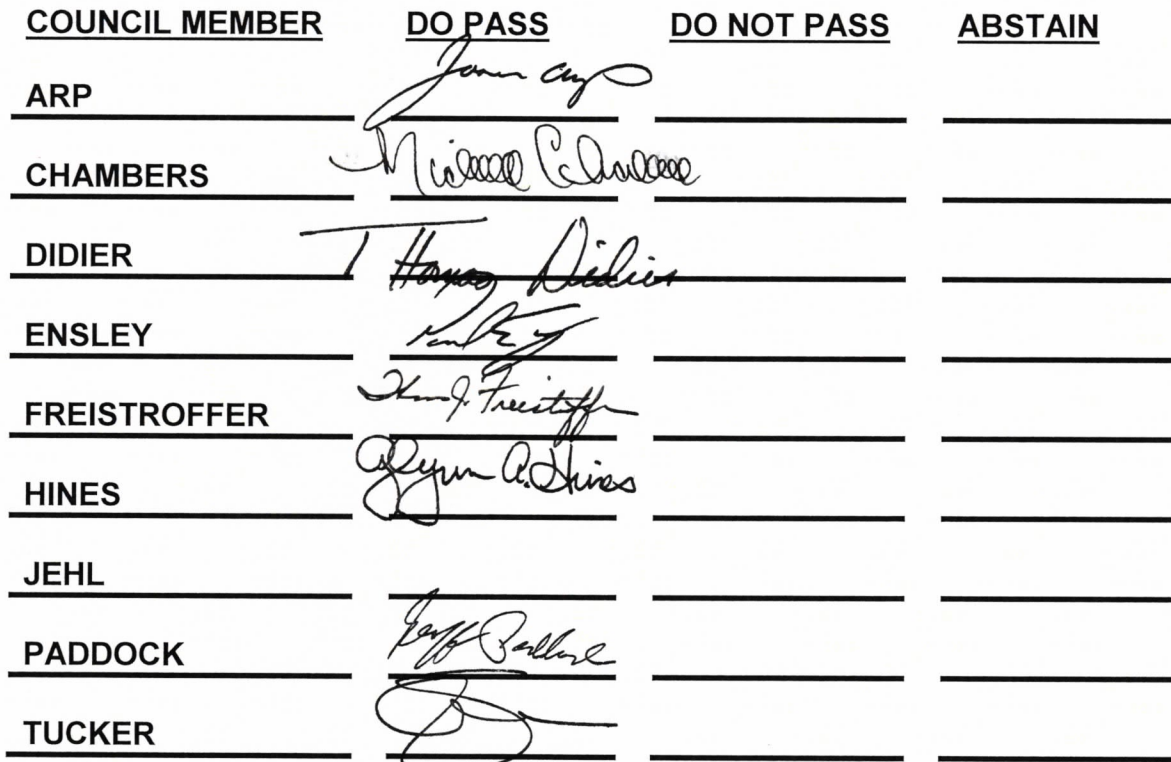 COUNCIL MEMBER DO PASS DO NOT PASS ABSTAIN
ARP
CHAMBERS
DIDIER Thomas Didier
ENSLEY
FREISTROFFER J. Freistroffer
HINES Glynn A. Hines
JEHL
PADDOCK Jeff Paddock
TUCKER